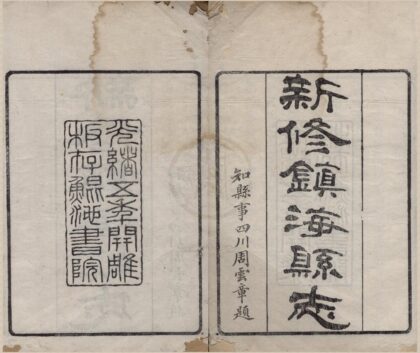 新修鎮海縣志
知縣事四川周雲章題
光緒五年開雕
板存鯤池書院